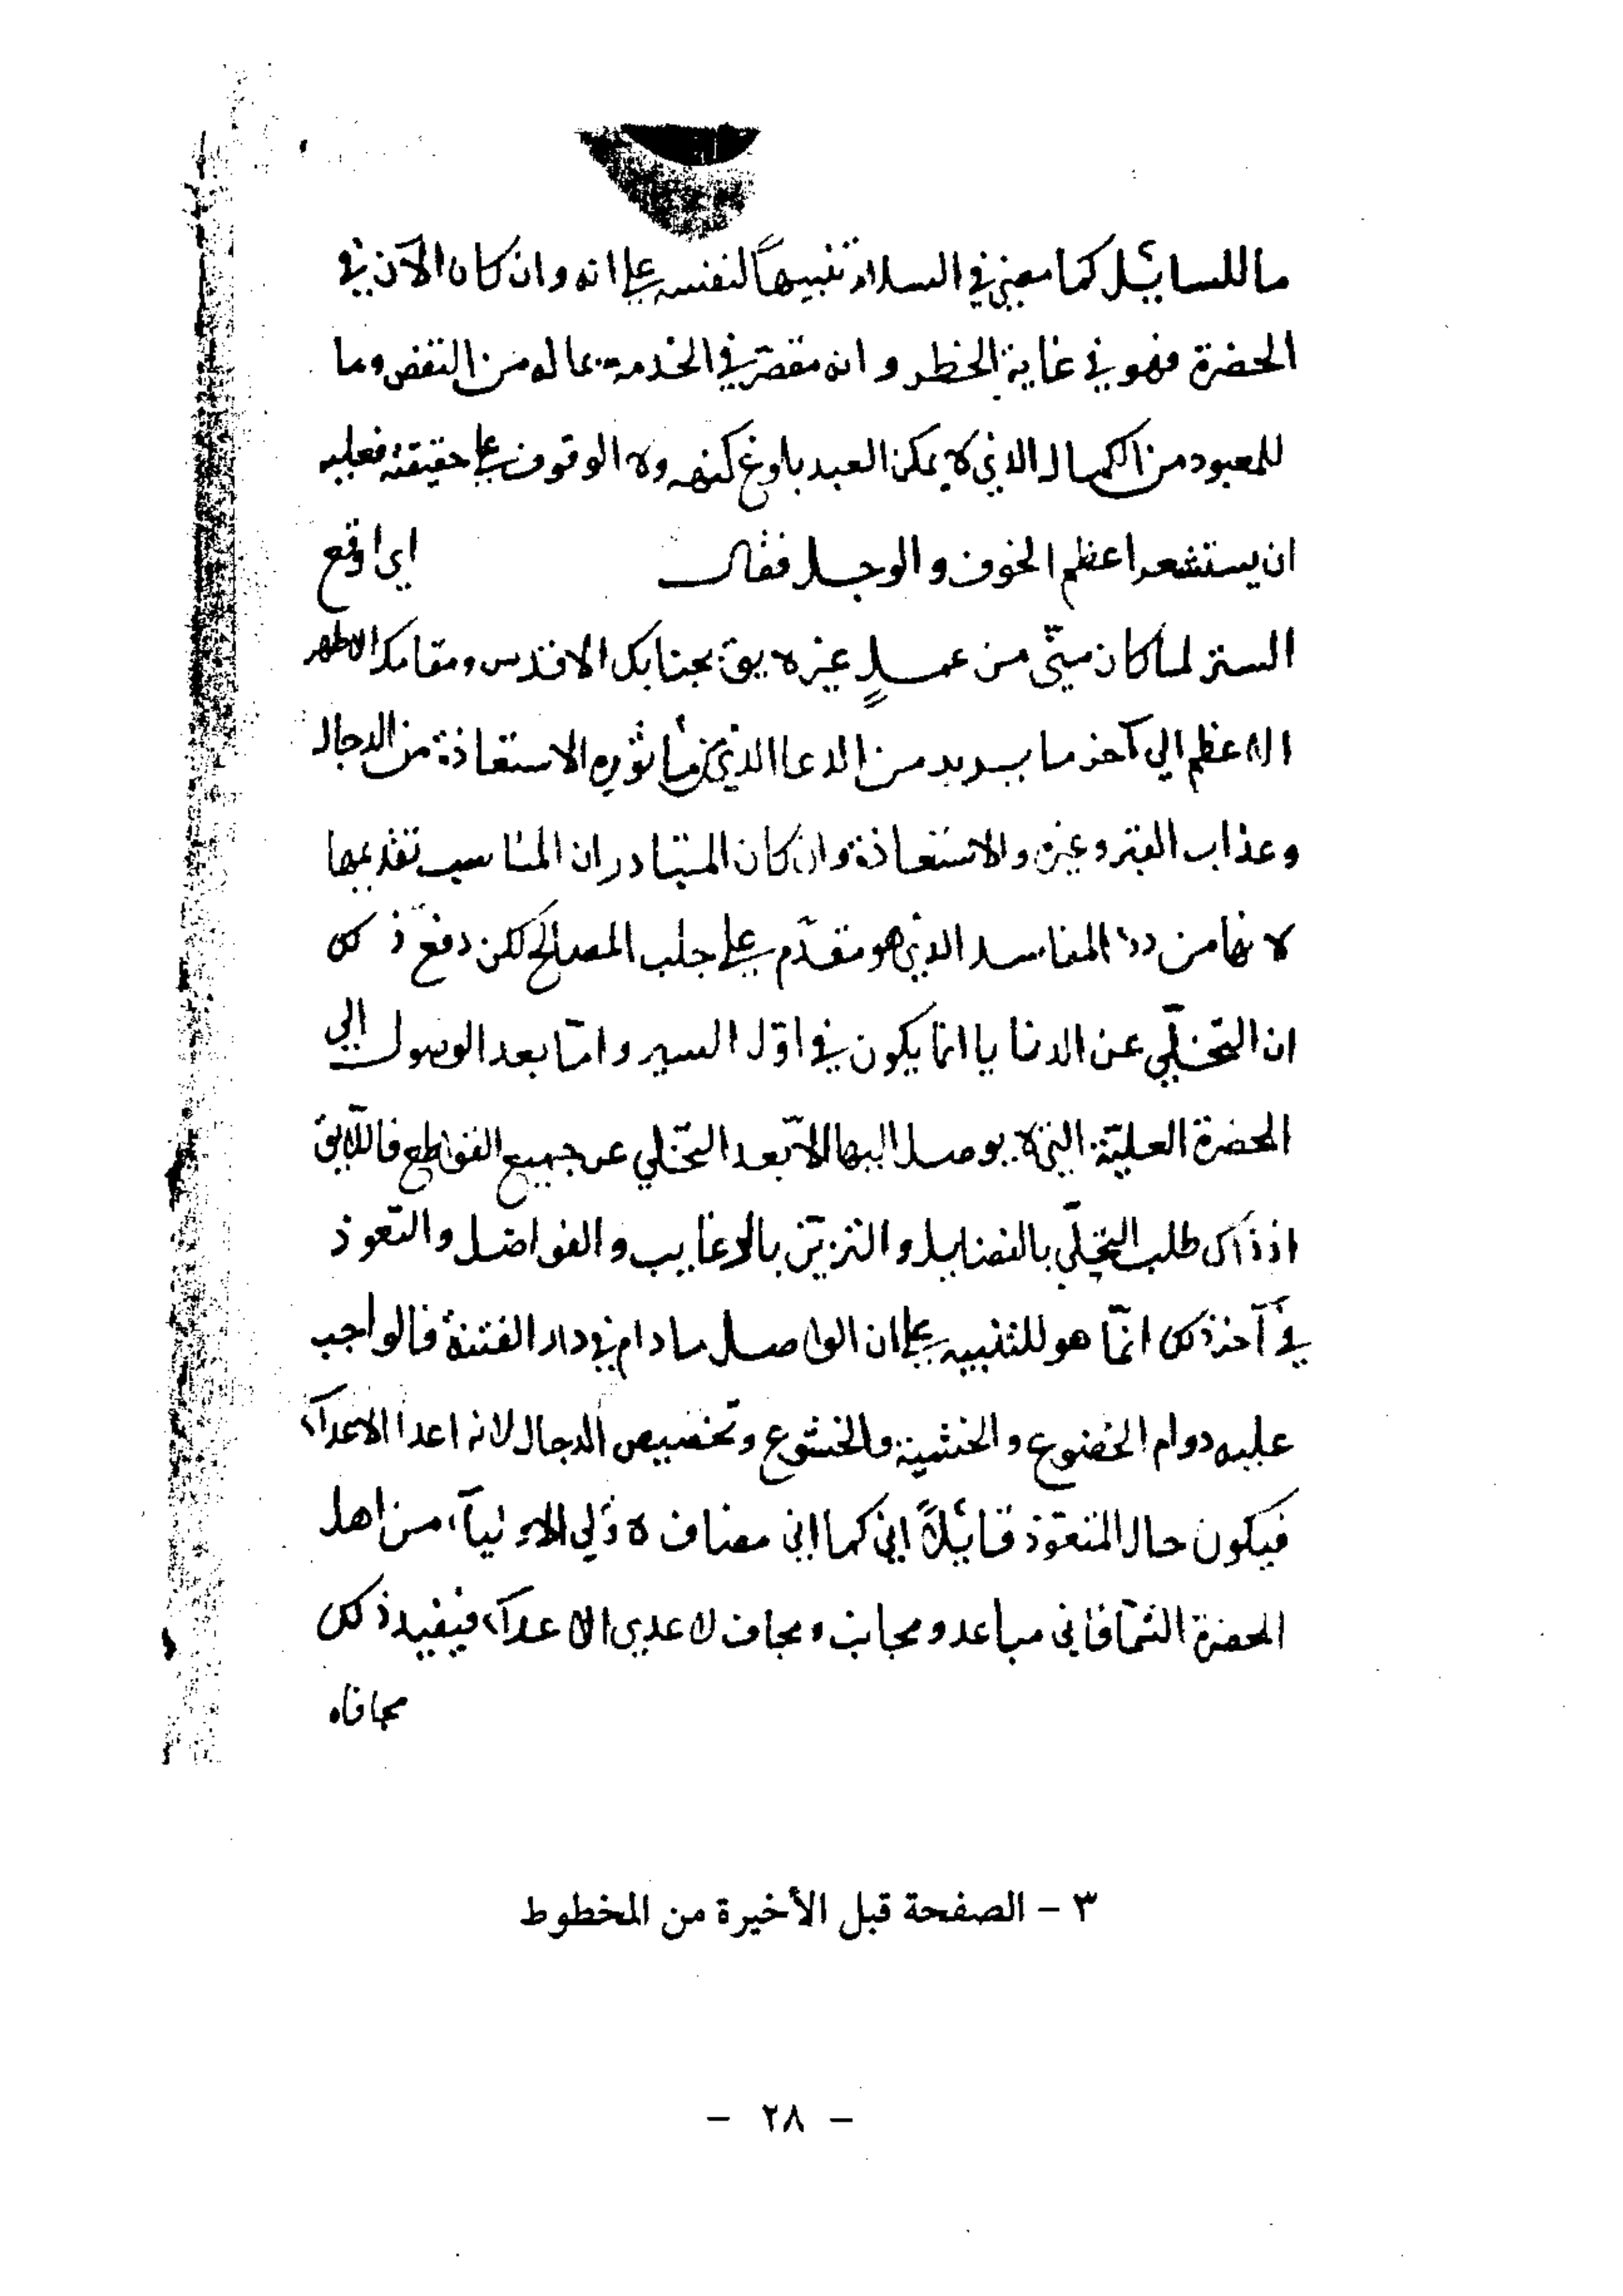 ما للسائل كما مضى في السلام تنبيهاً لنفسه على انه وان كان الآن في
الحضرة فهو في غاية الخطر و انه مقصّر في الخدمة بما له من النقص وما
للمعبود من الكمال الذي لا يمكن العبد بلوغ كنهه ولا الوقوف على حقيقته فعليه
ان يستشعر اعظم الخوف و الوجل فقال اي اوقع
الستر لما كان منّي من عملٍ غير لايق بجنابك الاقدس ومقامك الاطهر
الاعظم الي آخر ما يريد من الدعا الذي من مأثوره الاستعاذة من الدجال
وعذاب القبر وغيره والاستعاذة وان كان المتبادر ان المناسب تقديمها
لانها من درء المفاسد الذي هو مقدّم على جلب المصالح لكن دفع ذلك
ان التخلّي عن الدنايا انما يكون في اوّل السير و امّا بعد الوصول الي
الحضرة العليّة التي لا يوصل اليها الّا بعد التخلي عن جميع القواطع فاللّايق
اذ ذاك طلب التحلّي بالفضايل و التزيّن بالرغايب و الفواضل و التعوذ
في آخر ذلك انمّا هو للتنبيه على ان الواصل ما دام في دار الفتنة فالواجب
عليه دوام الخضوع و الخشية والخشوع وتخصيص الدجال لانه اعدا الاعدآء
فيكون حال المتعوّذ قائلاً اني كما اني مصاف لاولي الاوليآء من اهل
الحضرة الشمّا فاني مباعد ومجانب ومجاف لاعدي الاعدآء فيفيد ذلك
مجافاه
٣ - الصفحة قبل الأخيرة من المخطوط
- ٢٨ -